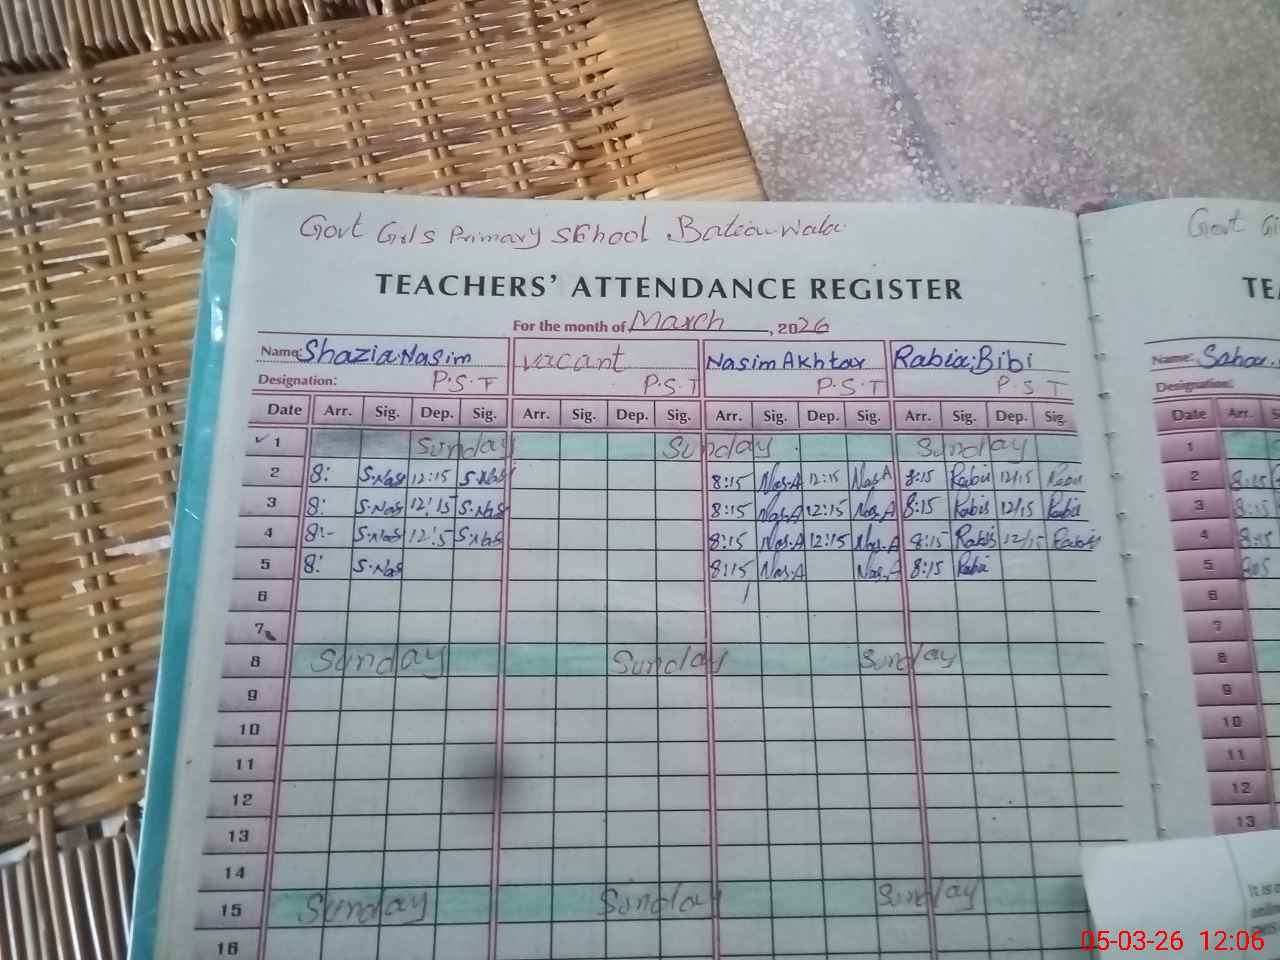 Govt Girls Primary School Batianwala
Govt
TEACHERS' ATTENDANCE REGISTER
TE
For the month of March, 2026
Name: Shazia Nasim vacant Nasim Akhtar Rabia Bibi Name:
Designation: P.S.T P.S.T P.S.T P.S.T Designation:
Date Arr. Sig. Dep. Sig. Arr. Sig. Dep. Sig. Arr. Sig. Dep. Sig. Arr. Sig. Dep. Sig. Date Arr.
1 Sunday Sunday Sunday 1
2 8: S.Nas 12:15 S.Nas 8:15 Nas.A 12:15 Nas A 8:15 Rabis 12/15 2 8:15
3 8: S.Nas 12:15 S.Nas 8:15 Nas.A 12:15 Nas.A 8:15 Rabis 12/15 Rabis 3 8:15
4 8:- S.Nas 12:5 S.Nas 8:15 Nas.A 12:15 Nas.A 8:15 Rabis 12/15 Rabis 4 8:15
5 8: S.Nas 8:15 Nas.A Nas.A 8:15 Rabi 5
6 6
7 7
8 Sunday Sunday Sunday 8
9 9
10 10
11 11
12 12
13 13
14
15 Sunday Sunday Sunday
16
05-03-26 12:06